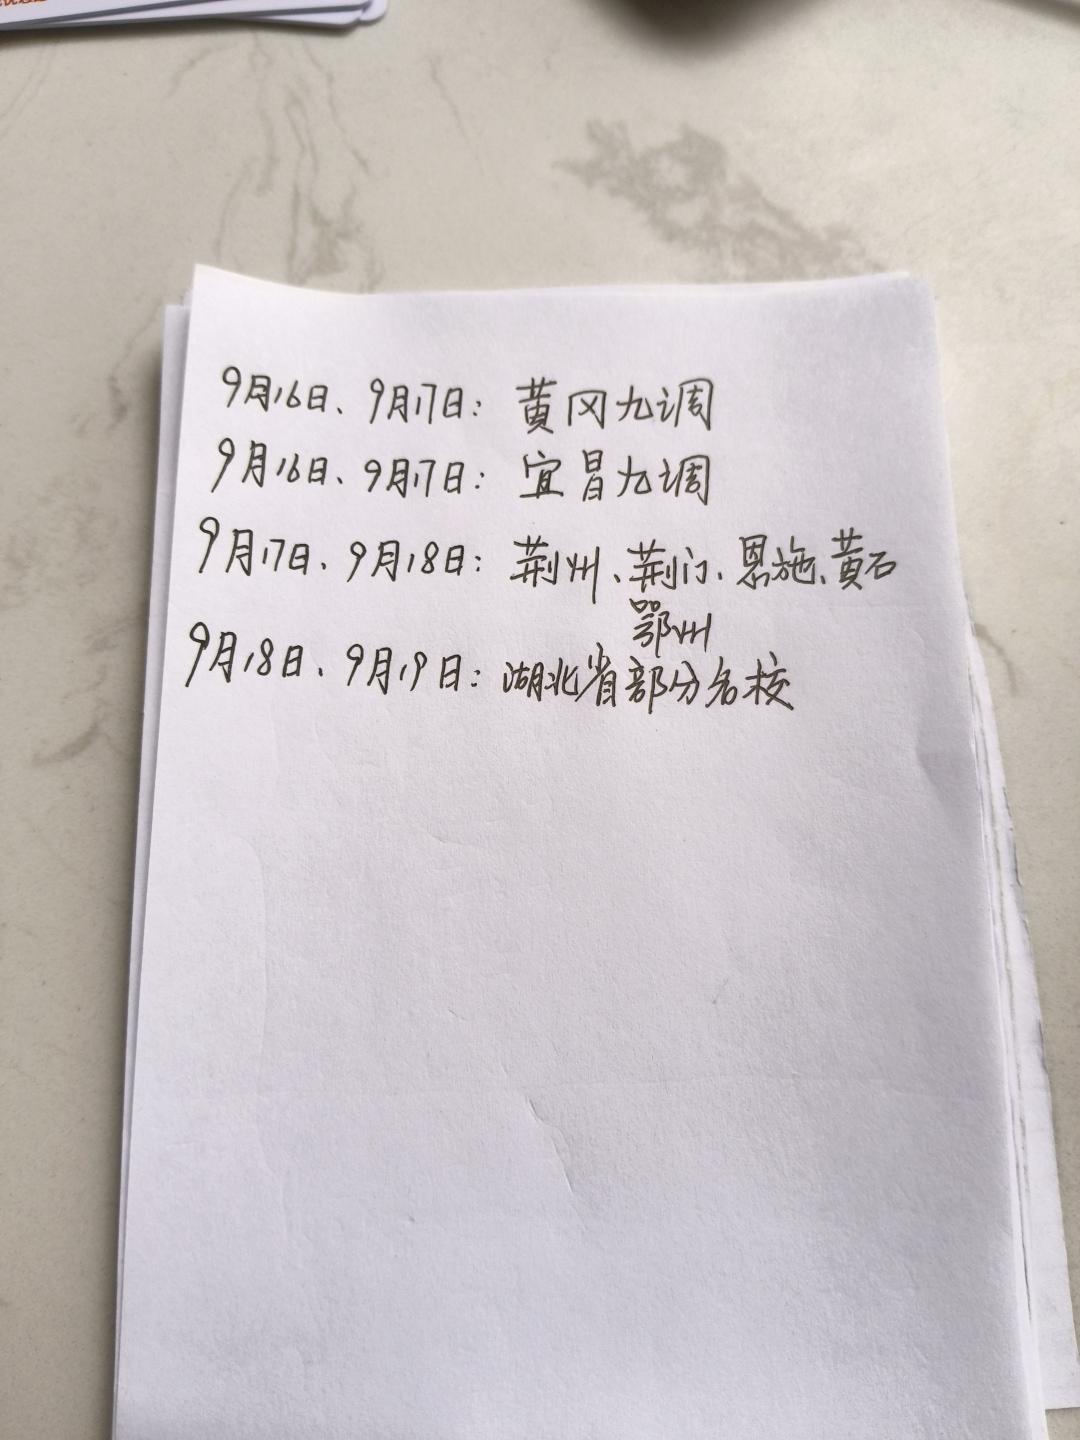 9月16日、9月17日：黄冈九调
9月16日、9月17日：宜昌九调
9月17日、9月18日：荆州、荆门、恩施、黄石
鄂州
9月18日、9月19日：湖北省部分名校